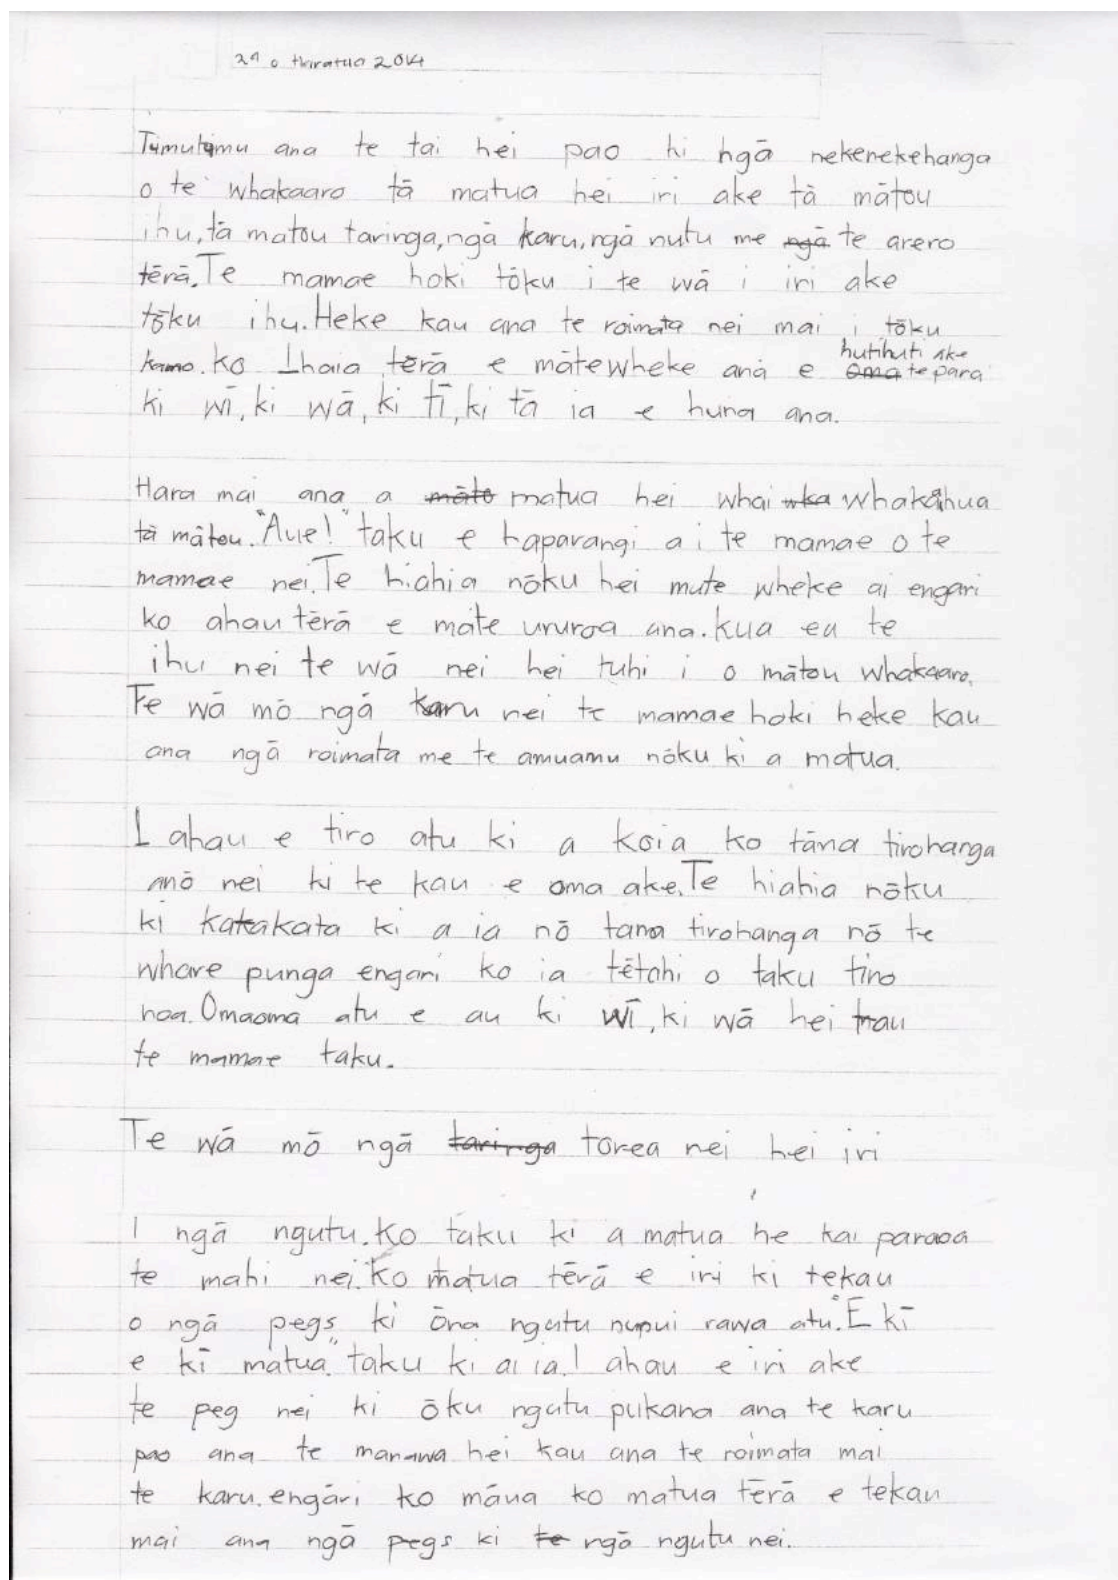 29 o Hiratua 2014
Tūmutūmu ana te tai hei pao ki ngā nekenekehanga
o te whakaaro tā matua hei iri ake tā mātou
ihu, tā matou taringa, ngā karu, ngā nutu me ngā te arero
tērā. Te mamae hoki tōku i te wā i iri ake
tōku ihu. Heke kau ana te roimata nei mai i tōku
kamo. Ko Ihaia tērā e māte wheke ana e oma hutihuti ake te para
ki wī, ki wā, ki tī, ki tā ia e huna ana.
Hara mai ana a māto matua hei whai wka whakāhua
tā mātou. "Aue!" taku e haparangi a i te mamae o te
mamae nei. Te hiahia nōku hei mute wheke ai engari
ko ahau tērā e mate ururoa ana. Kua ea te
ihu nei te wā nei hei tuhi i o mātou whakaaro.
Te wā mō ngā karu nei te mamae hoki heke kau
ana ngā roimata me te amuamu nōku ki a matua.
I ahau e tiro atu ki a Koia ko tāna tirohanga
anō nei ki te kau e oma ake. Te hiahia nōku
ki katakata ki a ia nō tana tirohanga nō te
whare punga engari ko ia tētahi o taku tino
hoa. Omaoma atu e au ki wī, ki wā hei mau
te mamae taku.
Te wā mō ngā taringa torea nei hei iri
I ngā ngutu. Ko taku ki a matua he kai paraoa
te mahi nei. Ko matua tērā e iri ki tekau
o ngā pegs ki ōna ngutu nunui rawa atu. "E kī
e kī matua" taku ki ai ia. I ahau e iri ake
te peg nei ki ōku ngutu pukana ana te karu
pao ana te manawa hei kau ana te roimata mai
te karu. engāri ko māua ko matua tērā e tekau
mai ana ngā pegs ki te ngā ngutu nei.